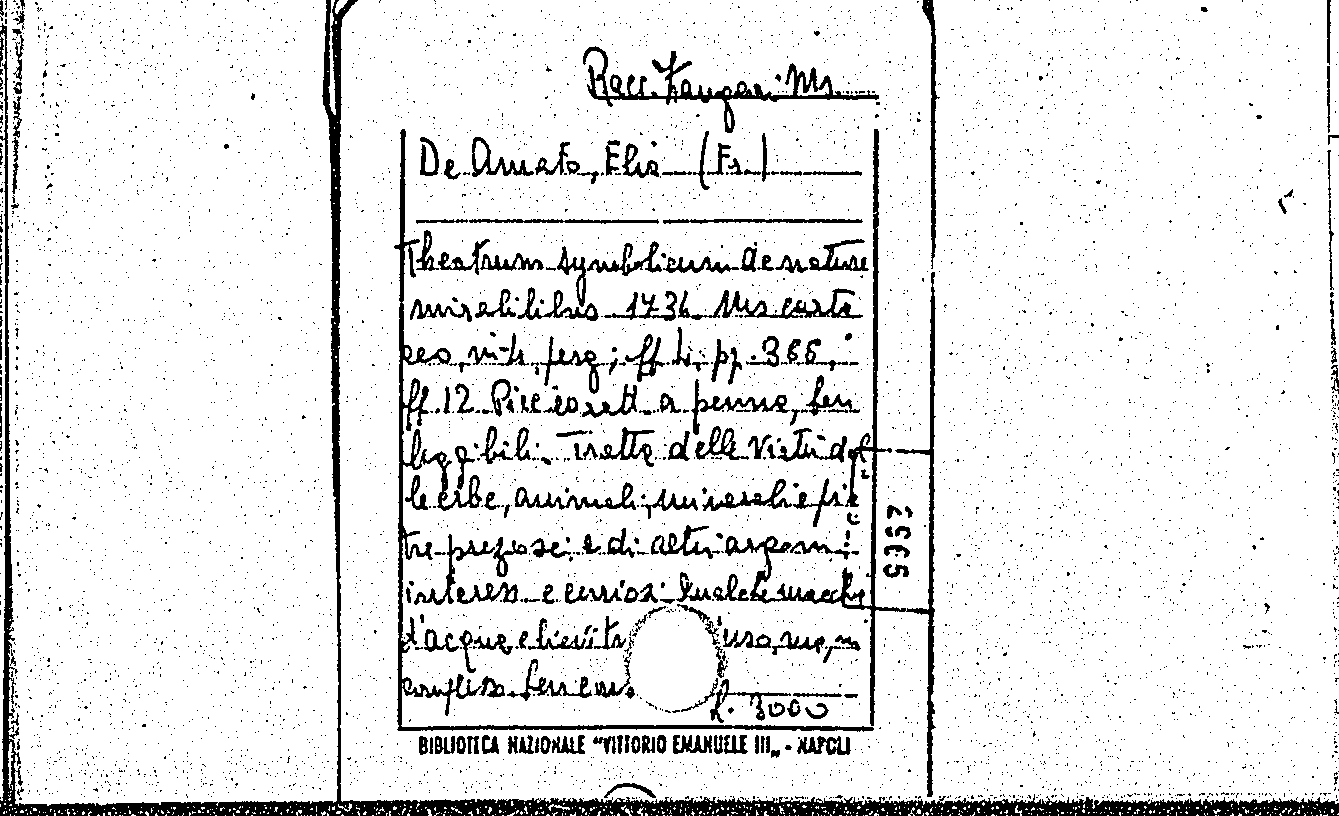 Racc. Zangari Ms.
De Amato, Elia (Fr.)
Theatrum symbolicum de nature
mirabilibus 1736. Ms carta
ceo, in-4, perg; ff 4. pp. 366,
ff. 12 Piccoli caratt. a penna, ben
leggibili. Tratta delle Virtù del
le erbe, animali, minerali e pie
tre preziose e di altri argom.
interess. e curiosi. Qualche macchia
d'acqua e lievi tr uso, ma, in
complesso ben cons.
L. 3000
BIBLIOTECA NAZIONALE "VITTORIO EMANUELE III„ - NAPOLI